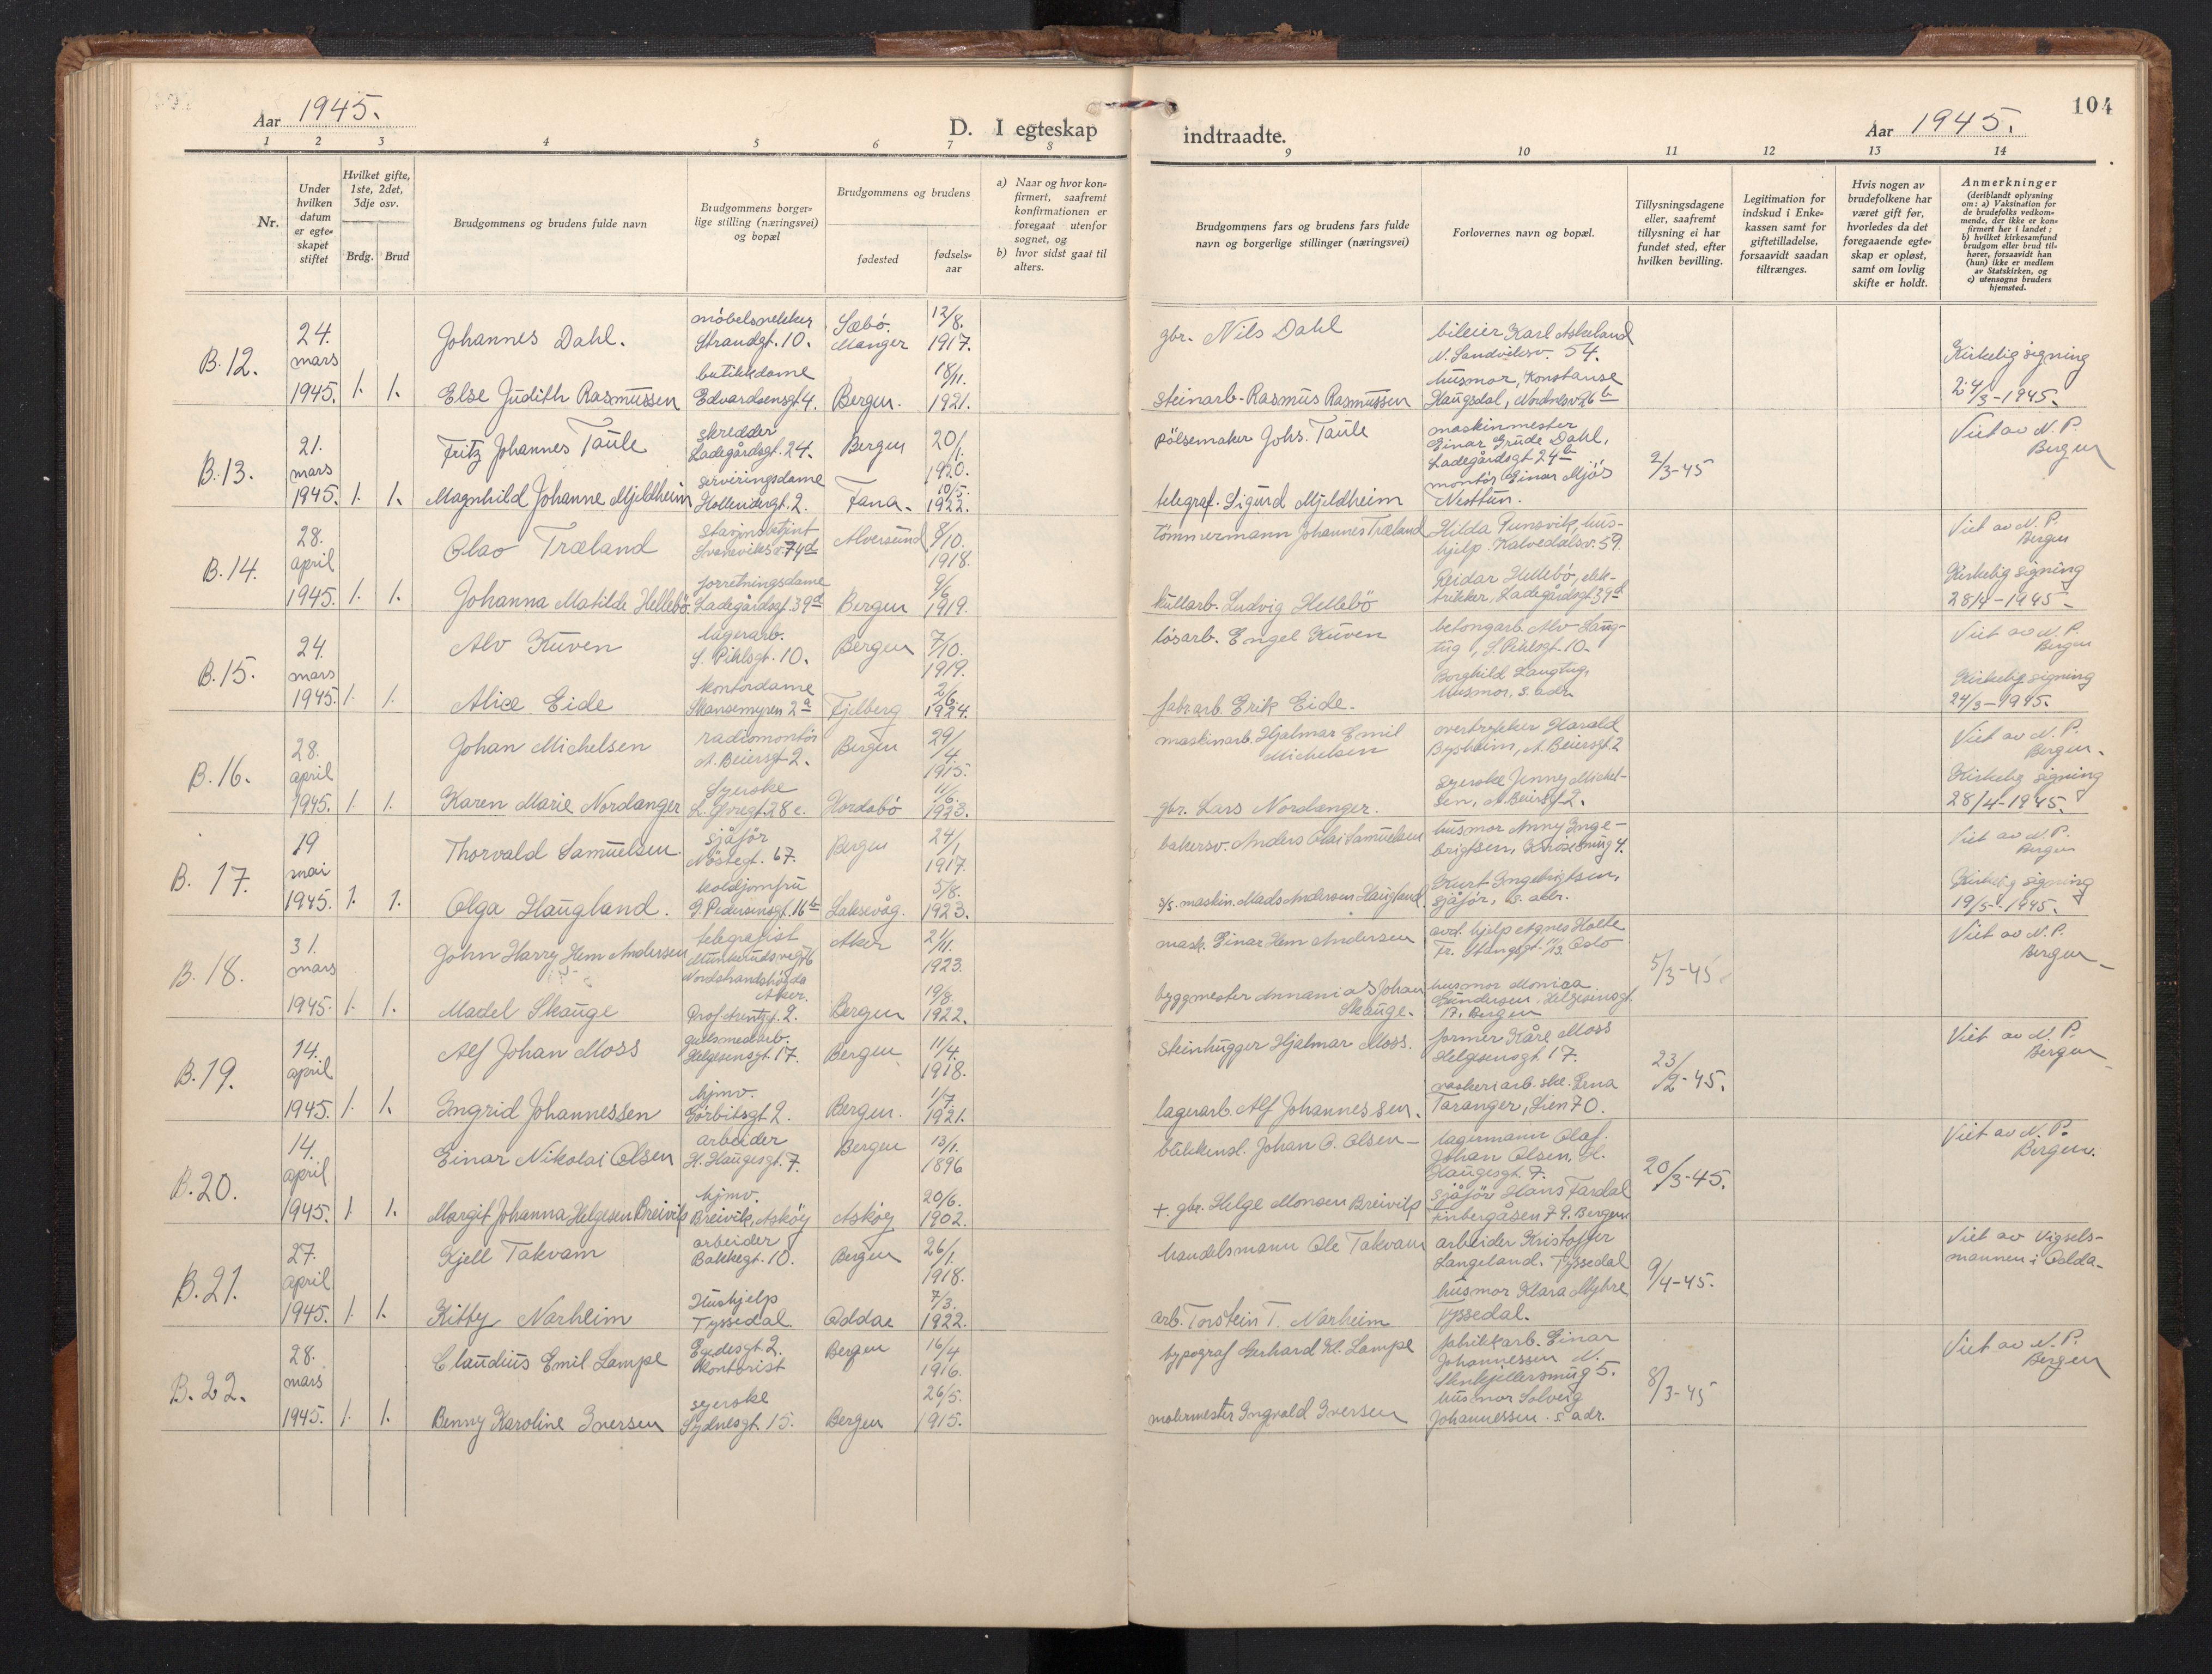 Aar 1945.
D. I egteskap
indtraadte.
Aar 1945.
104
1 2 3 4 5 6 7 8
9 10 11 12 13 14
Nr.
Under hvilken datum er egteskapet stiftet
Hvilket gifte, 1ste, 2det, 3dje osv.
Brdg. Brud
Brudgommens og brudens fulde navn
Brudgommens borgerlige stilling (næringsvei) og bopæl
Brudgommens og brudens
fødested
fødselsaar
a) Naar og hvor konfirmert, saafremt konfirmationen er foregaat utenfor sognet, og
b) hvor sidst gaat til alters.
Brudgommens fars og brudens fars fulde navn og borgerlige stillinger (næringsvei)
Forlovernes navn og bopæl.
Tillysningsdagene eller, saafremt tillysning ei har fundet sted, efter hvilken bevilling.
Legitimation for indskud i Enkekassen samt for giftetilladelse, forsaavidt saadan tiltrænges.
Hvis nogen av brudefolkene har været gift før, hvorledes da det foregaaende egteskap er opløst, samt om lovlig skifte er holdt.
Anmerkninger
(deriblandt oplysning om: a) Vaksination for de brudefolks vedkommende, der ikke er konfirmert her i landet; b) hvilket kirkesamfund brudgom eller brud tilhører, forsaavidt han (hun) ikke er medlem av Statskirken, og c) utensogns bruders hjemsted.
B.12. 24. mars 1945. 1. 1.
Johannes Dahl. møbelsnekker Strandgt. 10. Sæbö. Manger 12/8. 1917.
Else Judith Rasmussen butikkdame Edvardsensgt 4. Bergen. 18/11. 1921.
gbr. Nils Dahl
steinarb. Rasmus Rasmussen
bileier Karl Askeland N. Sandviksv. 54.
husmor, Konstanse Haugsdal, Nordnesv 26 b
Kirkelig signing 24/3-1945.
B.13. 21. mars 1945. 1. 1.
Fritz Johannes Taule skredder Ladegårdsgt. 24. Bergen 20/1. 1920.
Magnhild Johanne Mjeldheim serviringsdame Hollendergt. 2. Fana. 10/5. 1922.
pölsemaker Johs. Taule
telegraf. Sigurd Mjeldheim
maskinmester Einar Grude Dahl, Ladegårdsgt 24 b
montör Einar Mjös Nesttun.
2/3-45
Viet av N. P. Bergen
B.14. 28. april 1945. 1. 1.
Olav Træland Svaneviksv. 74 d Alversund 8/10. 1918.
Johanna Matilde Hellebö. forretningsdame Ladegårdsgt. 39 d Bergen 9/6 1919.
Tömmermann Johannes Træland
kullarb. Ludvig Hellebö
Hilda hushjelp. Kalvedalsv. 59.
Reidar Hellebö, elektrikker, Ladegårdsgt 39 d
Viet av N. P. Bergen
Kirkelig signing 28/4-1945
B.15. 24. mars 1945. 1. 1.
Alv Kuven lagerarb. S. Pihlsgt. 10. Bergen 7/10. 1919.
Alice Eide kontordame Skansemyren 2 a Fjelberg 2/6. 1924.
lösarb. Engel Kuven
fabr.arb. Erik Eide.
betongarb. Alv Langtug, S. Pihlsgt. 10.
Borghild Langtug, husmor, s. adr.
Viet av N. P. Bergen
Kirkelig signing 24/3-1945.
B.16. 28. april 1945. 1. 1.
Johan Michelsen radiomontör A. Beiersgt 2. Bergen 29/4. 1915.
Karen Marie Nordanger Syerske 28 c. Hordabö 11/6. 1923.
maskinarb. Hjalmar Emil Michelsen
gbr. Lars Nordanger.
overtrykker Harald Bysheim, A. Beiersgt 2
syerske Jenny Michelsen, A. Beiersgt 2.
Viet av N. P. Bergen.
Kirkelig signing 28/4-1945.
B. 17. 19 mai 1945. 1. 1.
Thorvald Samuelsen. sjåfør Nöstegt. 67. Bergen 24/1. 1917.
Olga Haugland. koldjomfru G. Pedersensgt. 16 b Laksevåg. 5/8. 1923.
bakersv. Anders Olai Samuelsen
s/s. maskin. Mads Andersen Haugland.
husmor Anny Ingebrigtsen, 4.
Kurt Ingebrigtsen, sjåför, s. adr.
Viet av N. P. Bergen
Kirkelig signing 19/5-1945.
B. 18. 31. mars 1945. 1. 1.
John Harry Hem Andersen telegrafist Nordstrandshögda Aker. Aker 21/11. 1923.
Madel Skauge Prof. 2. Bergen 19/8. 1922.
mask. Einar Hem Andersen
byggmester Annanias Johan Skauge.
avd. hjelp Agnes Holte Fr. Stangsgt. 11/13 Oslo
husmor Monica Gundersen, Helgesensgt. Bergen
5/3-45
Viet av N. P. Bergen
B.19. 14. april 1945. 1. 1.
Alf Johan Moss gullsmedarb. Helgesensgt. 17. Bergen 11/4. 1918.
Ingrid Johannessen hjmv. Görbitsgt 2. Bergen. 1/7. 1921.
Steinhugger Hjalmar Moss.
lagerarb. Alf Johannessen.
former Kåre Moss Helgesensgt 17.
vaskeriarb.ske. Lena Taranger, Lien 70.
23/2-45.
Viet av N. P. Bergen
B.20. 14. april 1945. 1. 1.
Einar Nikolai Olsen arbeider H. Haugesgt. 7. Bergen 13/1. 1896
Margit Johanna Helgesen Breivik hjmv. Breivik, Asköy Asköy 20/6. 1902.
blikkensl. Johan O. Olsen
+. gbr. Helge Monsen Breivik
lagermann Olaf Johan Olsen, H. Haugesgt. 7.
sjåför Hans Fardal 79. Bergen
20/3-45.
Viet av N. P. Bergen.
B.21. 27. april 1945. 1. 1.
Kjell Takvam arbeider Bakkegt. 10. Bergen 26/1. 1918.
Kitty Narheim Hushjelp Tyssedal. Odda 7/3. 1922.
handelsmann Ole Takvam
arb. Torstein T. Narheim
arbeider Kristoffer Langeland. Tyssedal
husmor Klara Myhre Tyssedal.
9/4-45.
Viet av Vigselsmannen i Odda
B.22. 28. mars 1945. 1. 1.
Claudius Emil Lampe Egedesgt 2. Kontorist Bergen 16/4 1916.
Benny Karoline Iversen syerske Sydnesgt 15. Bergen 26/5. 1915.
typograf Gerhard Kl. Lampe
malermester Ingvald Iversen
fabrikkarb. Einar Johannessen N. Stenkjellersmug 5.
husmor Solveig Johannessen s. adr.
8/3-45
Viet av N. P. Bergen